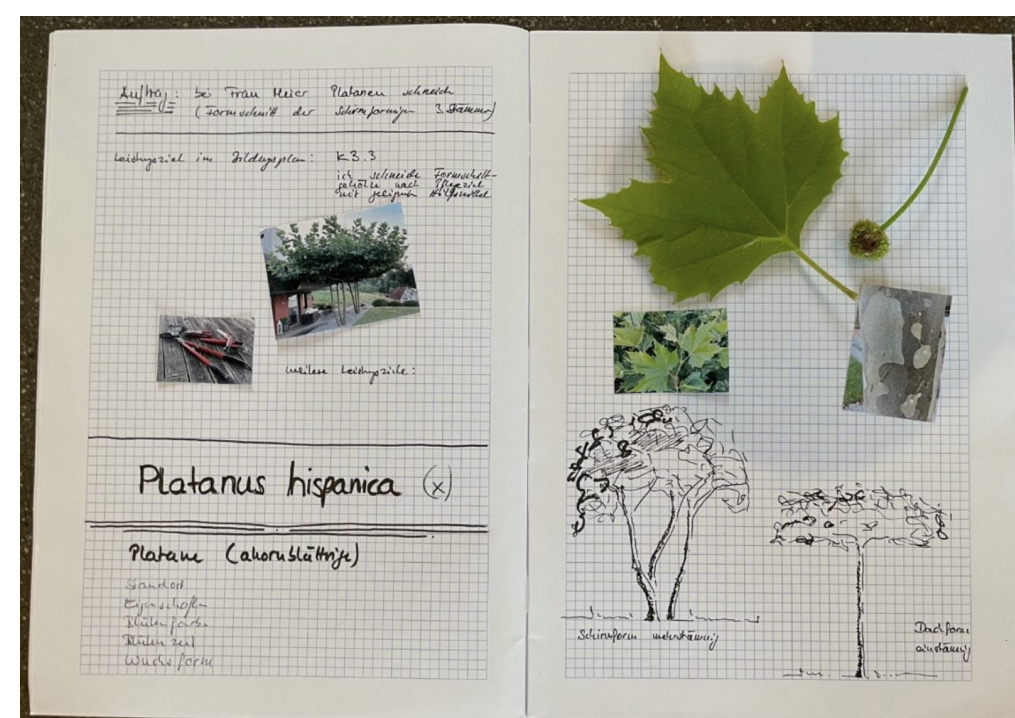 Auftrag: bei Frau Meier Platanen schneiden
(Formschnitt der Schirmförmigen 3 Stämmer)
Leistungsziel im Bildungsplan: K3.3
ich schneide Formschnitt-
gehölze nach Pflegeziel
mit Hilfsmittel
weitere Leistungsziele:
Platanus hispanica (x)
Platane (ahornblättrige)
Standort
Eigenschaften
Blütenfarbe
Blütenzeit
Wuchsform
Schirmform mehrstämmig
Dachform
einstämmig